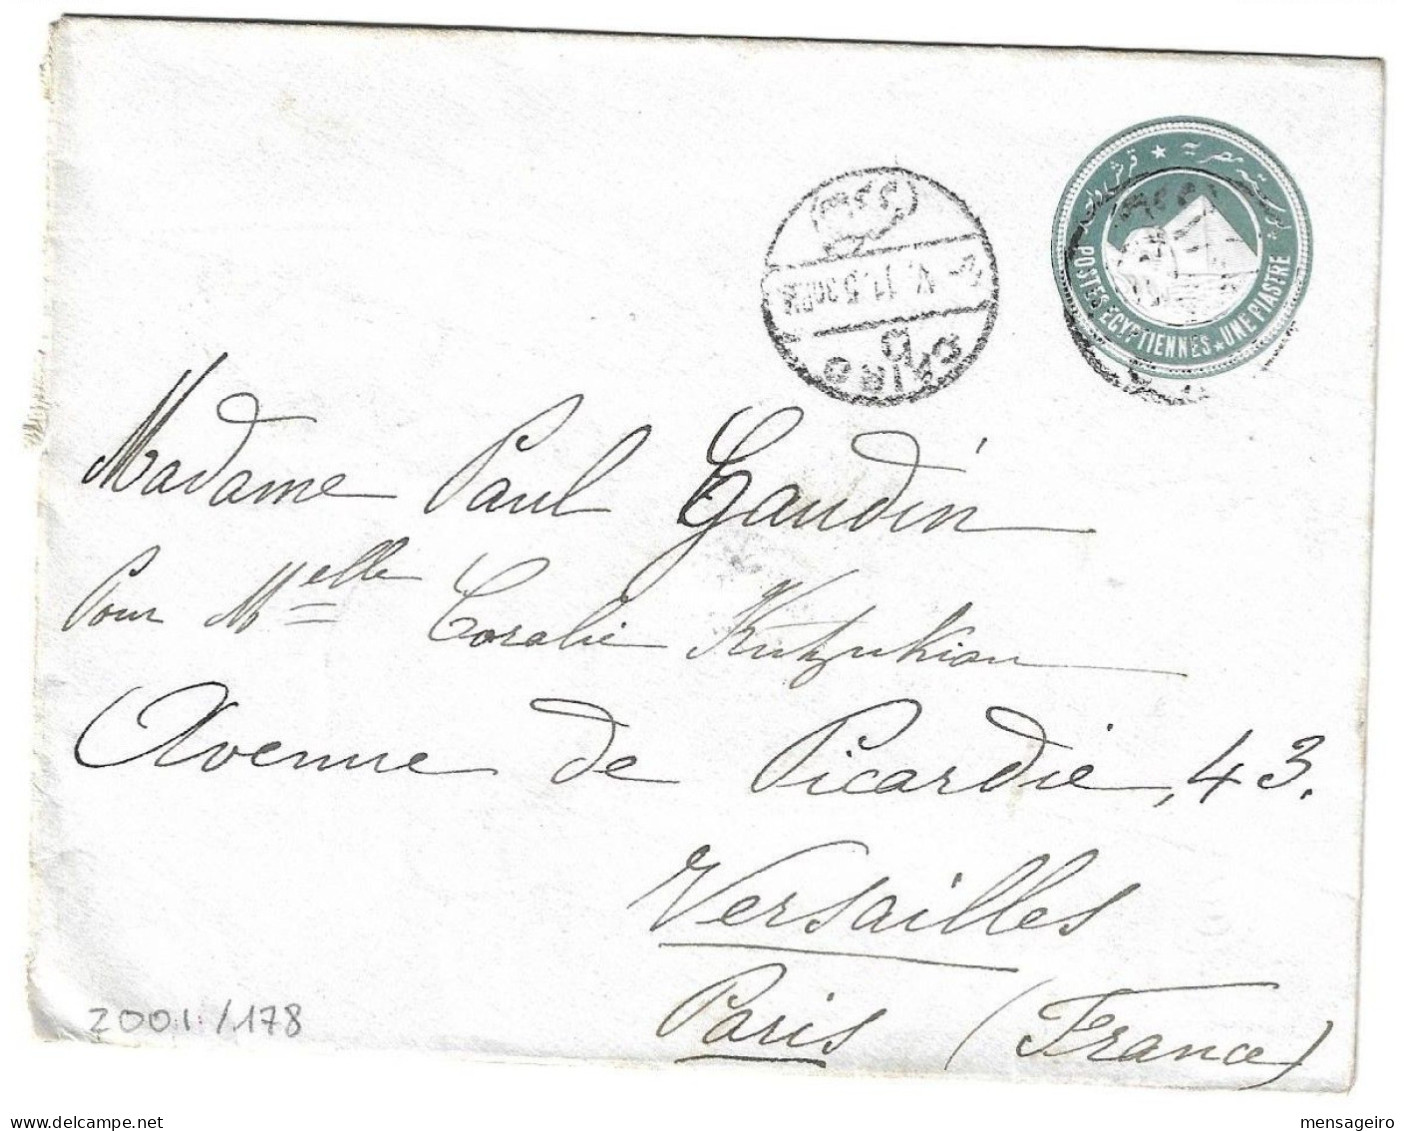 بوستة مصرية ★ قرش واحد
POSTES EGYPTIENNES ★ UNE PIASTRE
V. 11. 5
CAIRO
Madame Paul Gaudin
Pour Melle Coralie Kutzukian
Avenue de Picardie, 43.
Versailles
Paris (France)
2001./178
www.delcampe.net
mensageiro